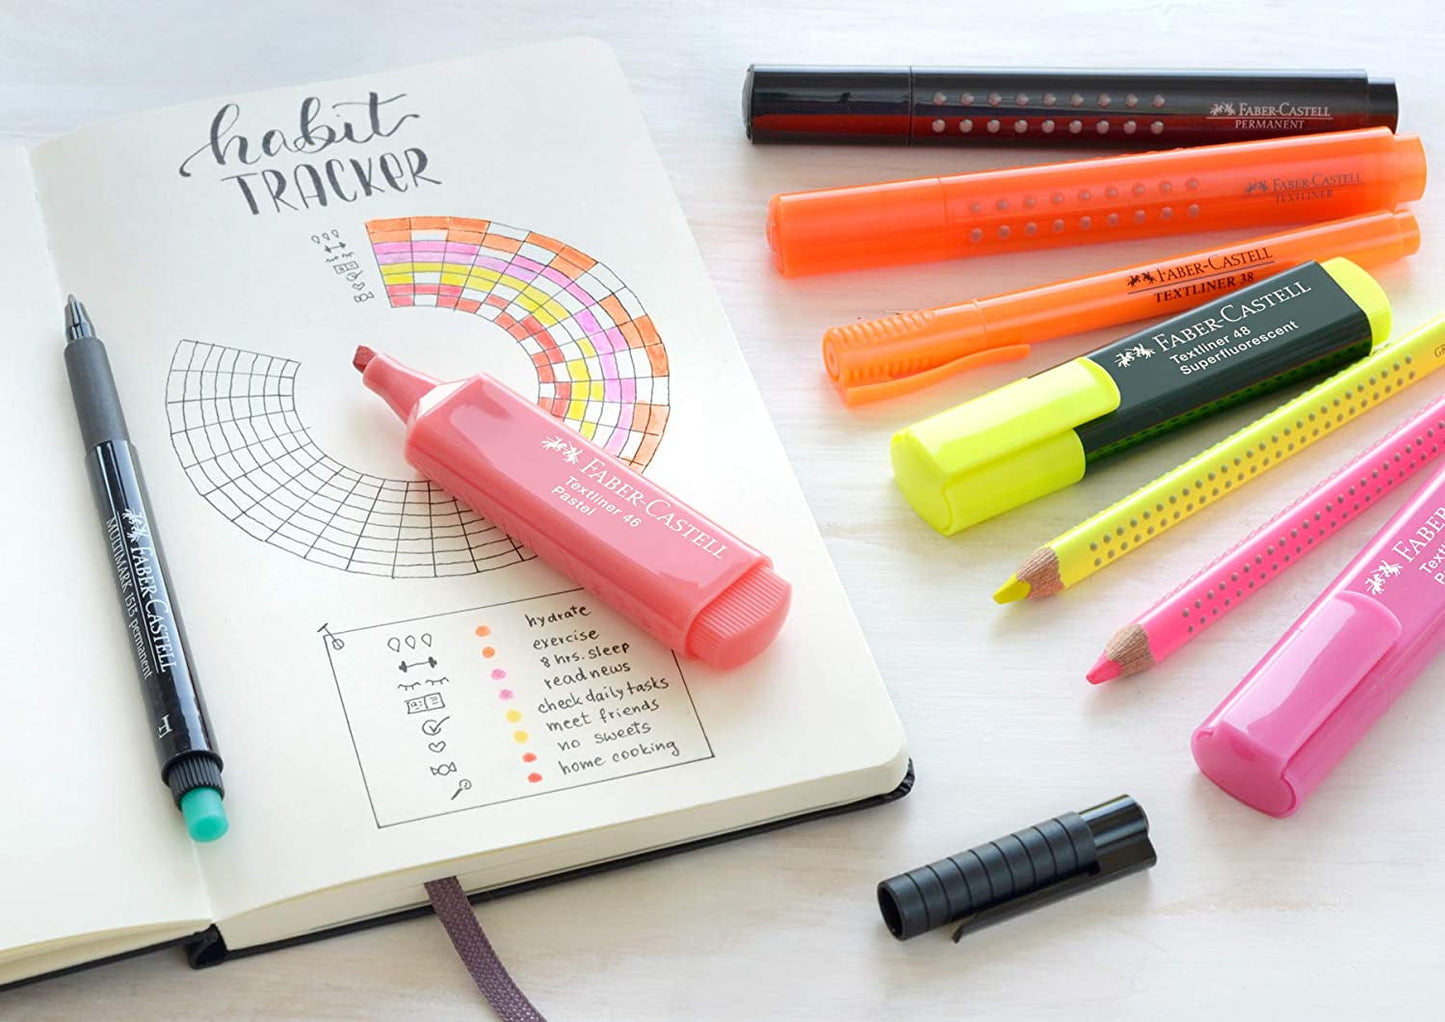 habit
TRACKER
hydrate
exercise
8 hrs. sleep
read news
check daily tasks
meet friends
no sweets
home cooking
FABER-CASTELL
MULTIMARK 1513 permanent
FABER-CASTELL
Textliner 46
Pastel
FABER-CASTELL
PERMANENT
FABER-CASTELL
TEXTLINER
FABER-CASTELL
TEXTLINER 38
FABER-CASTELL
Textliner 48
Superfluorescent
GR
FABER
Textl
P